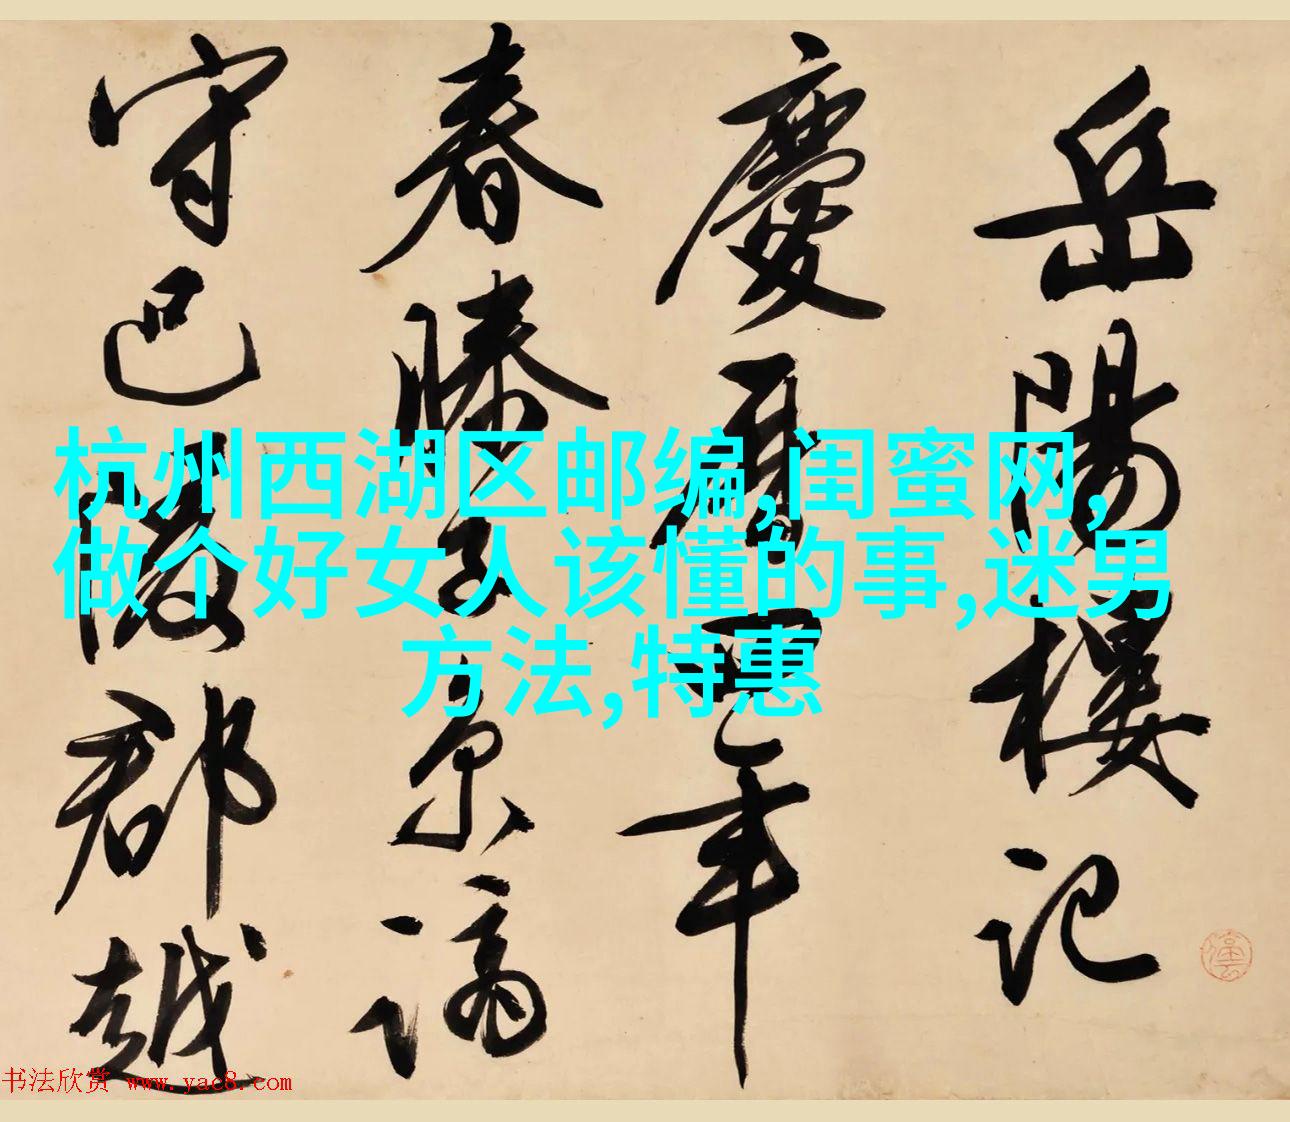 岳陽樓記
慶曆四年
春滕子京謫
守巴陵郡越
杭州西湖区邮编,闺蜜网,
做个好女人该懂的事,迷男
方法,特惠
书法欣赏 www.yac8.com